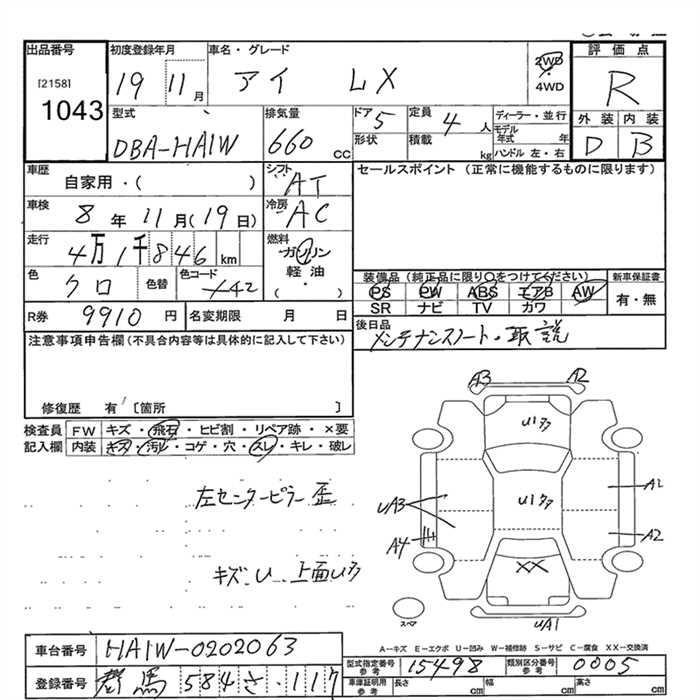 出品番号 初度登録年月 車名・グレード 評価点
[2158] 1043
19 11月 アイ LX 2WD・4WD R
型式 排気量 ドア 5 定員 4人 ディーラー・並行 外装 内装
DBA-HA1W 660 CC 形状 積載 kg モデル年式 年 ハンドル 左・右 D B
車歴 シフト AT セールスポイント(正常に機能するものに限ります)
自家用・( )
車検 8年11月(19日) 冷房 AC
走行 4万1千846km 燃料 ガソリン 軽油・( )
色 クロ 色替 色コード X42
装備品(純正品に限り○をつけてください) 新車保証書
PS PW ABS エアB AW 有・無
SR ナビ TV カワ
R券 9910円 名変期限 月 日 後日品
メンテナンスノート・取説
注意事項申告欄(不具合内容等は具体的に記入して下さい)
修復歴 有 [箇所 ]
検査員 FW キズ・飛石・ヒビ割・リペア跡・×要
記入欄 内装 キズ・汚レ・コゲ・穴・スレ・キレ・破レ
A3 A2
U13
左センターピラー歪
UA3 U13 A1
A4 A2
キズ、U、上面U3
XX
スペア UA1
A-キズ E-エクボ U-凹み W-補修跡 S-サビ C-腐食 XX-交換済
車台番号 HA1W-0202063
型式指定番号 参考 15498 類別区分番号 参考 0005
登録番号 群馬 584 さ ・117
車庫証明用 参考 長さ cm 幅 cm 高さ cm